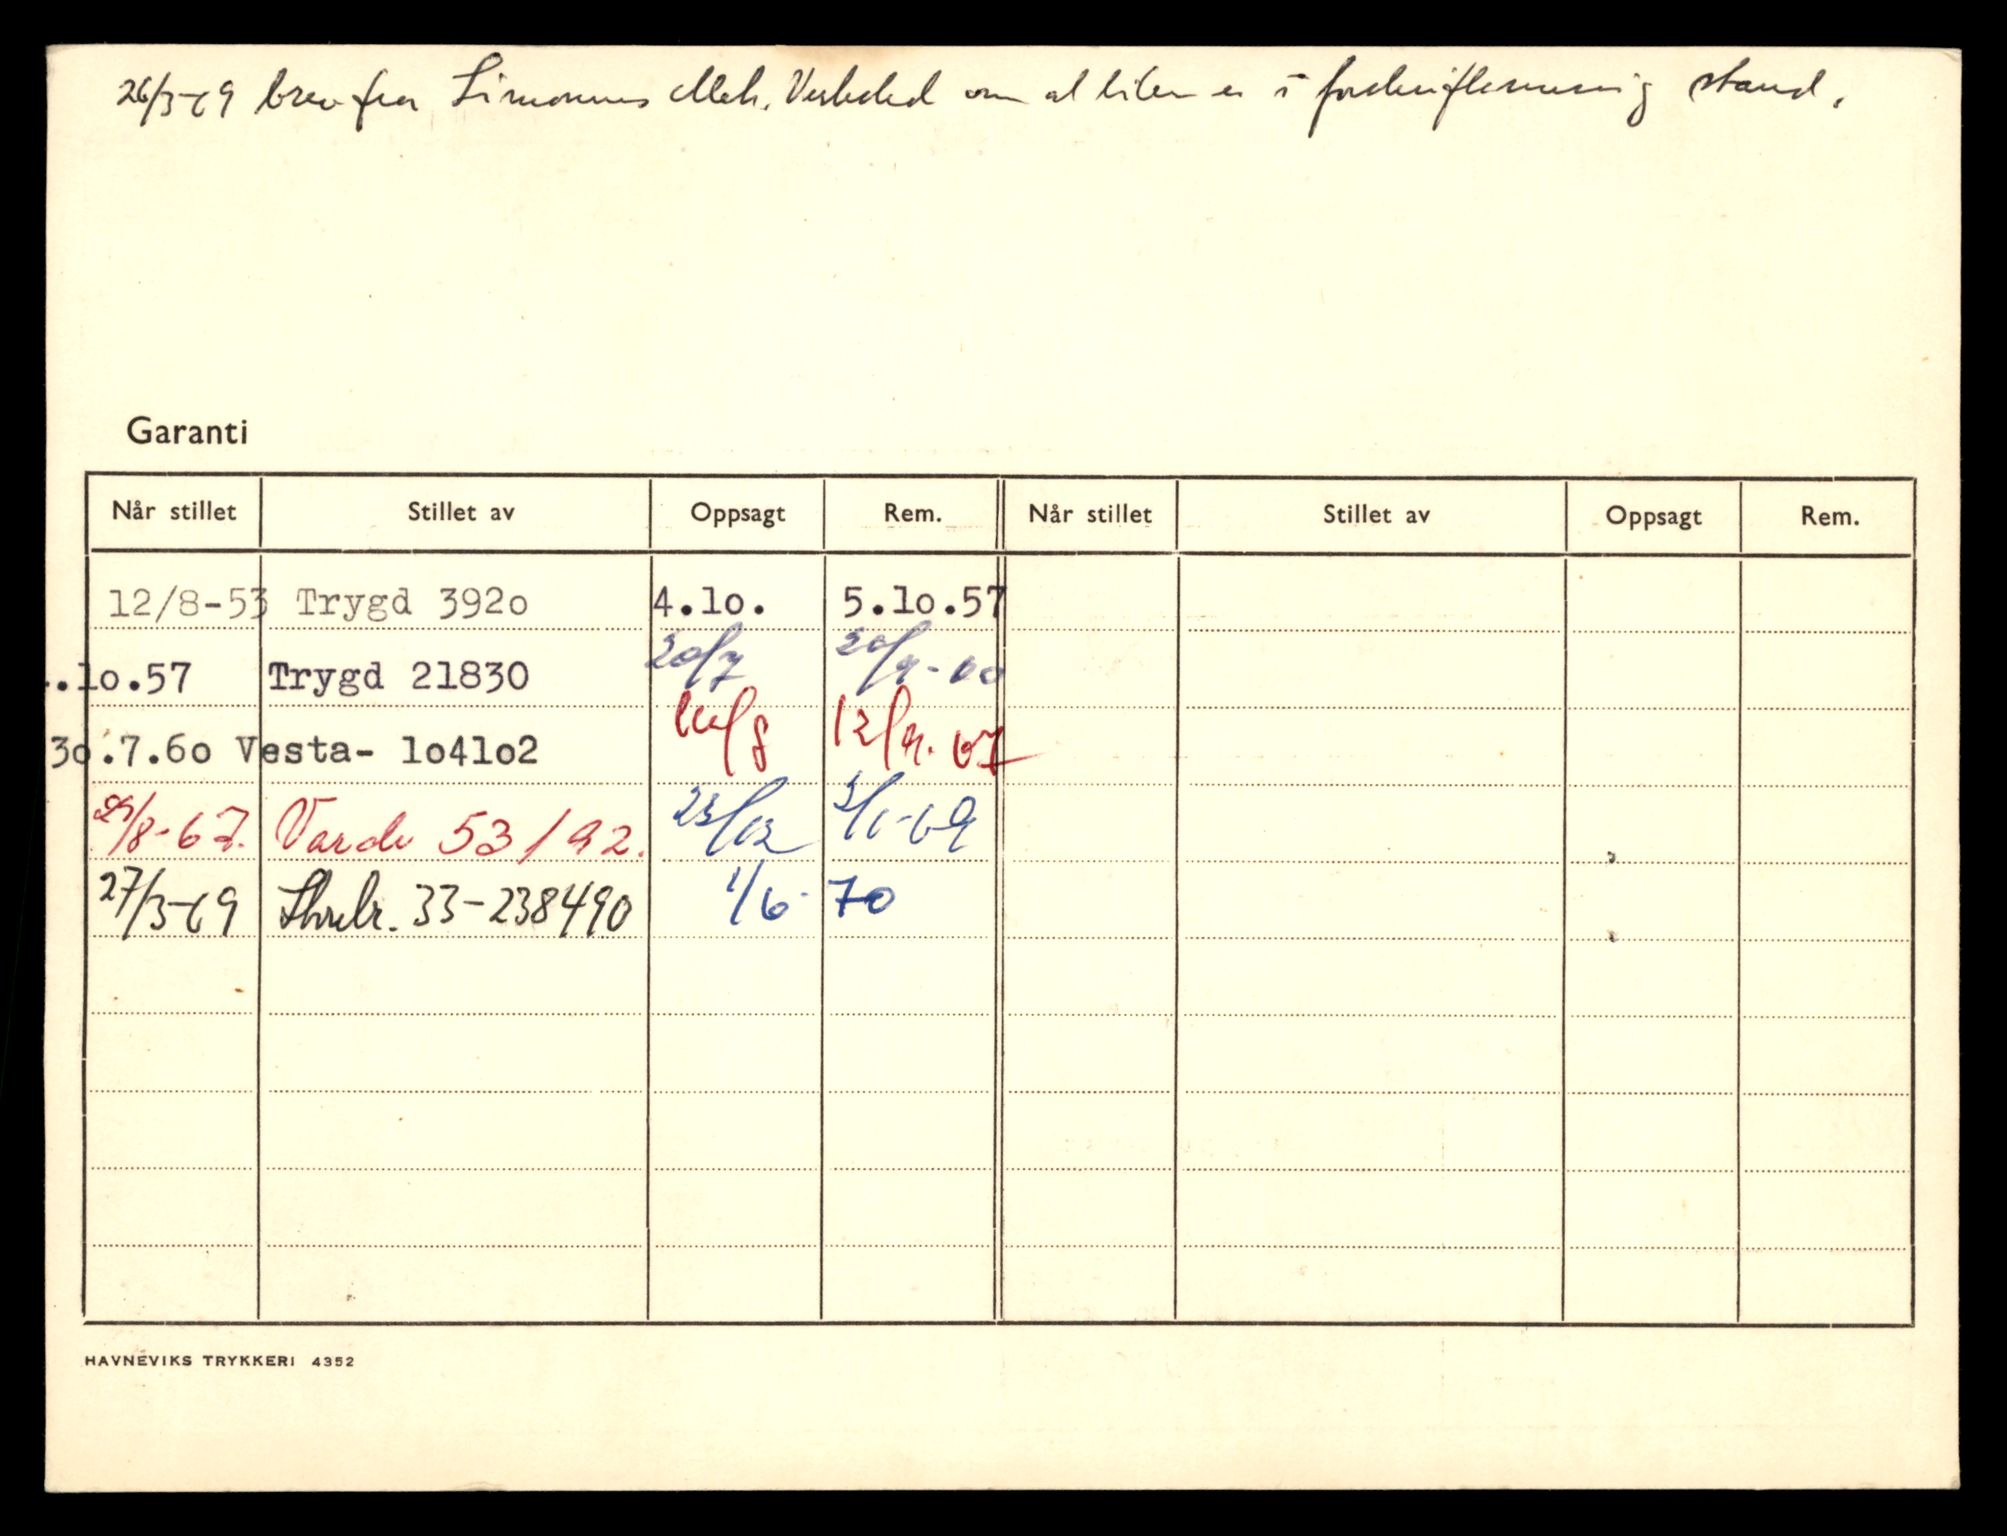 26/3-69 brev fra Simonnes Mek. Verksted om at bilen er i forskriftsmessig stand.
Garanti
Når stillet Stillet av Oppsagt Rem. Når stillet Stillet av Oppsagt Rem.
12/8-53 Trygd 392o 4.1o. 5.1o.57
.1o.57 Trygd 21830 20/7 20/9-60
3o.7.6o Vesta- 1o41o2 /8 12/9.67
/8-67. Varde 53192. 23/12 3/1-69
27/3-69 33-238490 1/6-70
HAVNEVIKS TRYKKERI 4352